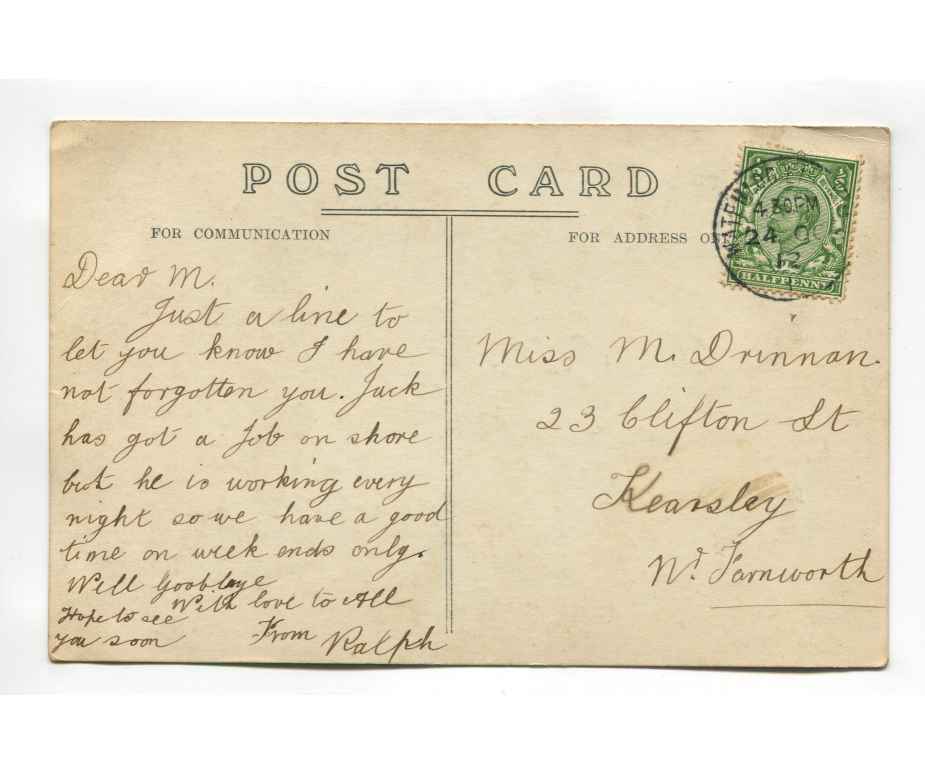 POST CARD
FOR COMMUNICATION
FOR ADDRESS
4.30PM
24
12
HALFPENNY
Dear M.
Just a line to
let you know I have
not forgotten you. Jack
has got a Job on shore
but he is working every
night so we have a good
time on week ends only.
Well Goobbye
With love to All
Hope to see
you soon
From Ralph
Miss M. Drinnan.
23 Clifton St
Kearsley
Nr. Farnworth